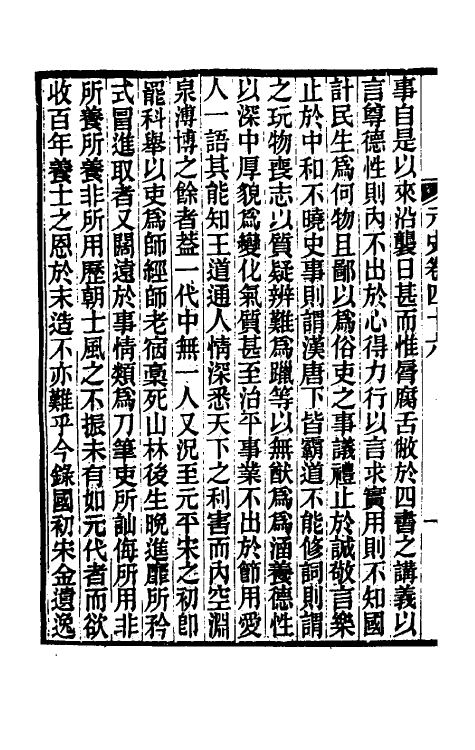 元史卷四十六 一
事自是以來沿襲日甚而惟脣腐舌敝於四書之講義以
言尊德性則內不出於心得力行以言求實用則不知國
計民生爲何物且鄙以爲俗吏之事議禮止於誠敬言樂
止於中和不曉史事則謂漢唐下皆霸道不能修詞則謂
之玩物喪志以質疑辨難爲躐等以無猷爲爲涵養德性
以深中厚貌爲變化氣質甚至治平事業不出於節用愛
人一語其能知王道通人情深悉天下之利害而內空淵
泉溥博之餘者葢一代中無一人又況至元平宋之初卽
罷科舉以吏爲師經師老宿稾死山林後生晚進靡所矜
式冒進取者又闊遠於事情類爲刀筆吏所訕侮所用非
所養所養非所用歷朝士風之不振未有如元代者而欲
收百年養士之恩於末造不亦難乎今錄國初宋金遺逸